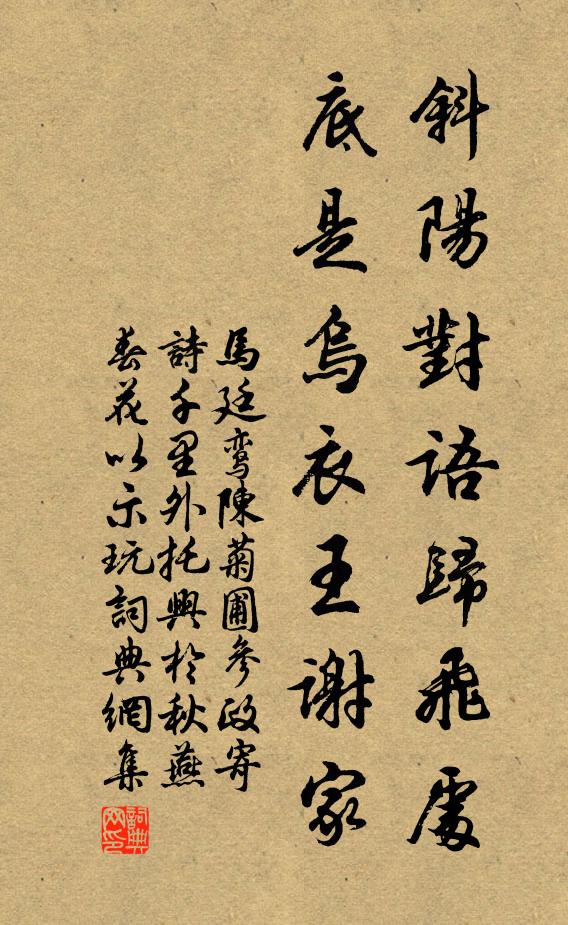 斜陽對語歸飛處
底是烏衣王謝家
馬廷鸞陳菊圃參政寄
詩千里外托興於秋燕
春花以示玩詞典網集
詞典
网印